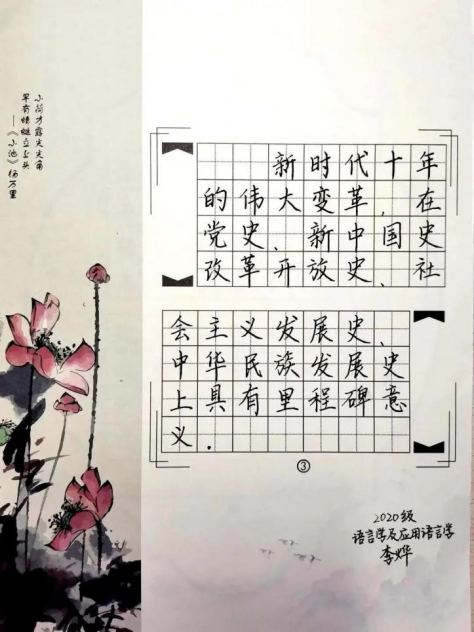 小荷才露尖尖角
早有蜻蜓立上头
——《小池》杨万里
新时代十年
的伟大变革，在
党史、新中国史
改革开放史、社
会主义发展史、
中华民族发展史
上具有里程碑意
义.
③
2020级
语言学及应用语言学
李烨